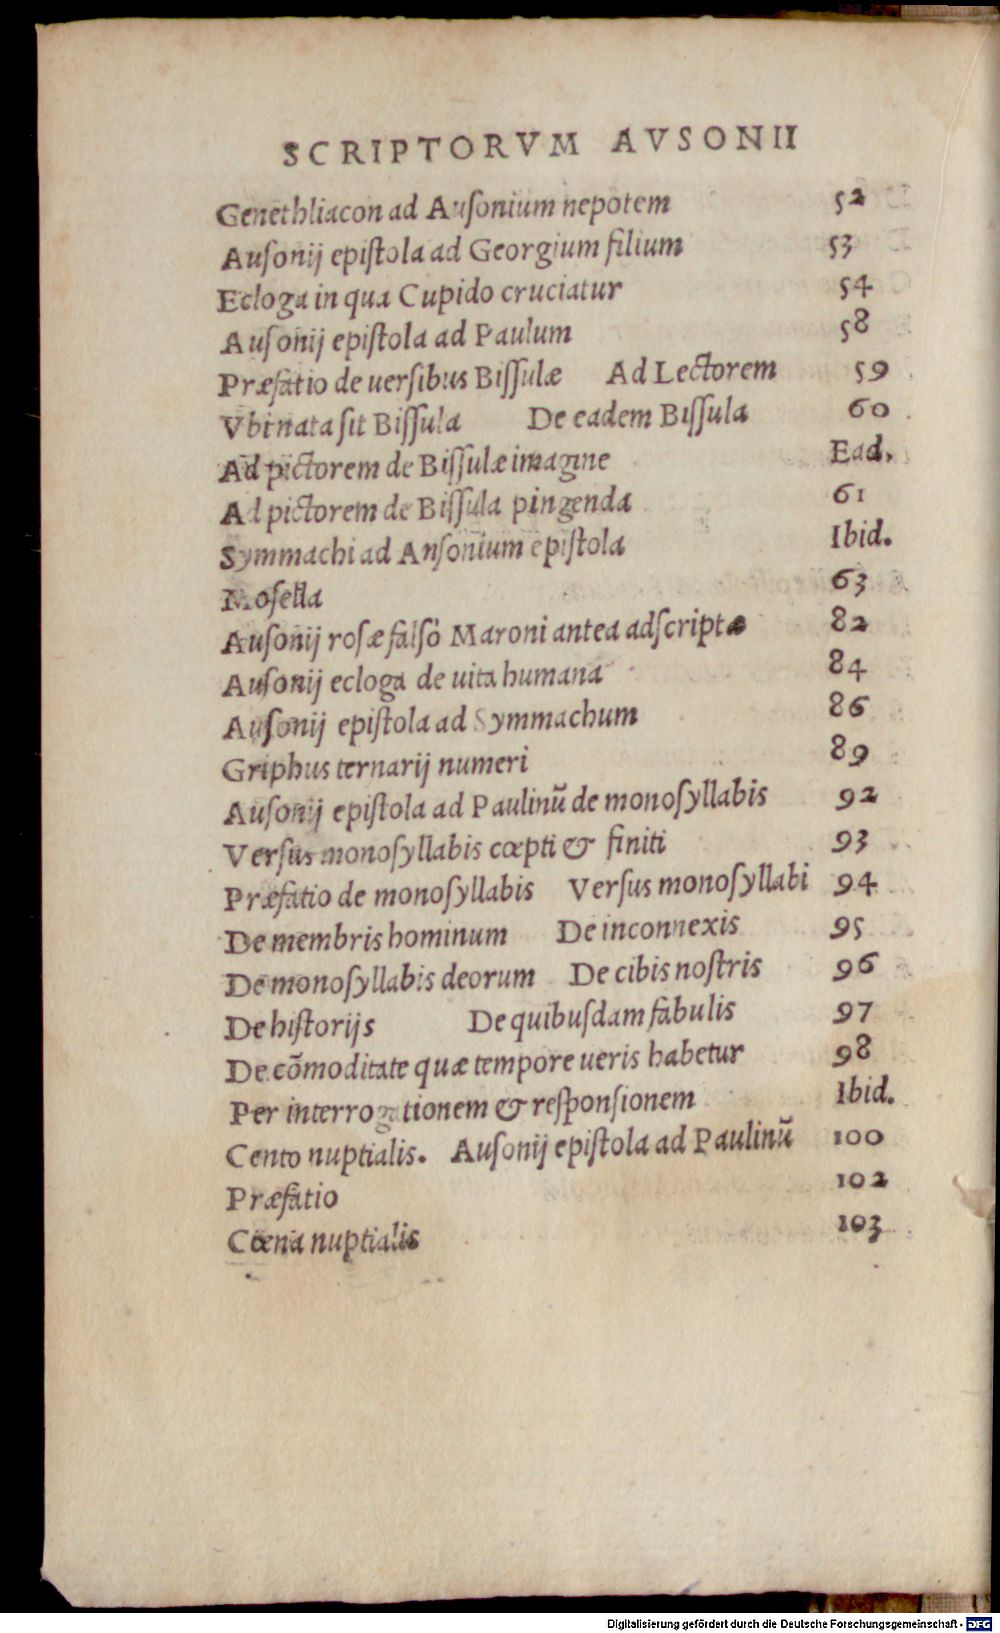 SCRIPTORVM AVSONII
Genethliacon ad Auſonium nepotem 52
Auſonij epiſtola ad Georgium filium 53
Ecloga in qua Cupido cruciatur 54
Auſonij epiſtola ad Paulum 58
Præfatio de uerſibus Biſſulæ Ad Lectorem 59
Vbi nata ſit Biſſula De eadem Biſſula 60
Ad pictorem de Biſſulæ imagine Ead.
Ad pictorem de Biſſula pingenda 61
Symmachi ad Anſonium epiſtola Ibid.
Moſella 63
Auſonij roſæ falſò Maroni antea adſcriptæ 82
Auſonij ecloga de uita humana 84
Auſonij epiſtola ad Symmachum 86
Griphus ternarij numeri 89
Auſonij epiſtola ad Paulinũ de monoſyllabis 92
Verſus monoſyllabis cœpti & finiti 93
Præfatio de monoſyllabis Verſus monoſyllabi 94
De membris hominum De inconnexis 95
De monoſyllabis deorum De cibis noſtris 96
De hiſtorijs De quibuſdam fabulis 97
De cõmoditate quæ tempore ueris habetur 98
Per interrogationem & reſponſionem Ibid.
Cento nuptialis. Auſonij epiſtola ad Paulinũ 100
Præfatio 102
Cœna nuptialis 103
Digitalisierung gefördert durch die Deutsche Forschungsgemeinschaft - DFG